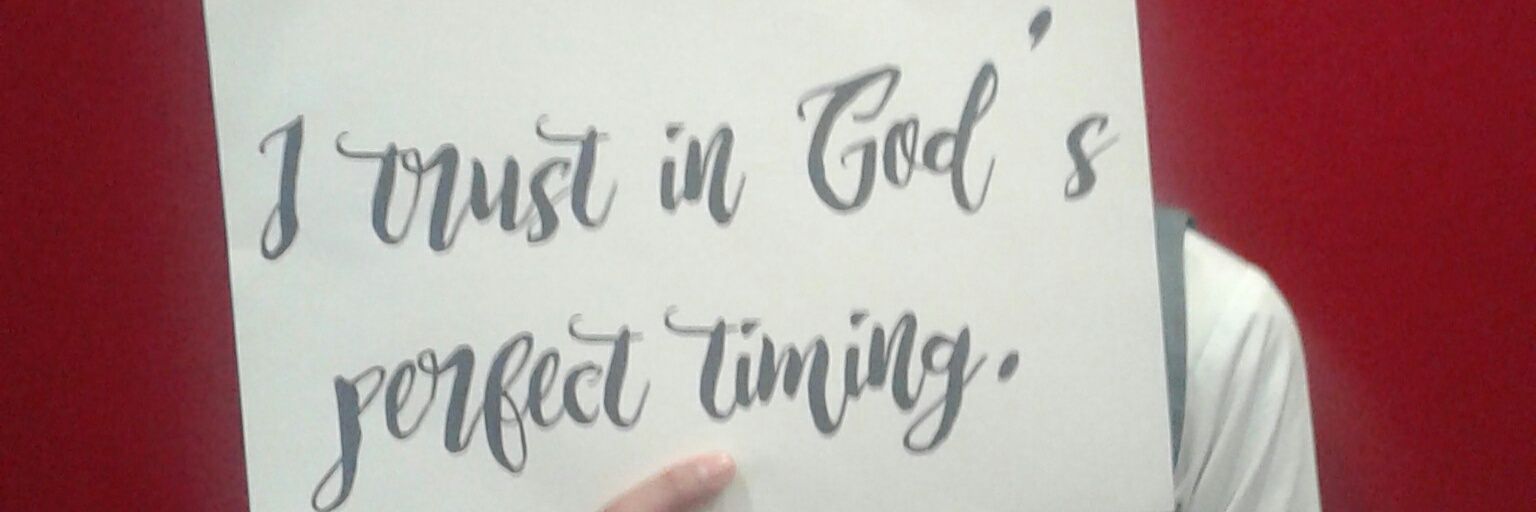 I trust in God's
perfect timing.